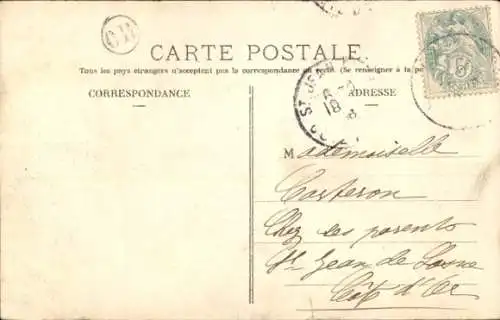 CARTE POSTALE
Tous les pays étrangers n'acceptent pas la correspondance au recto. (Se renseigner à la po
CORRESPONDANCE
ADRESSE
ST JEAN
Mademoiselle
Carteron
Chez ses parents
St Jean de Losne
Côte d'Or